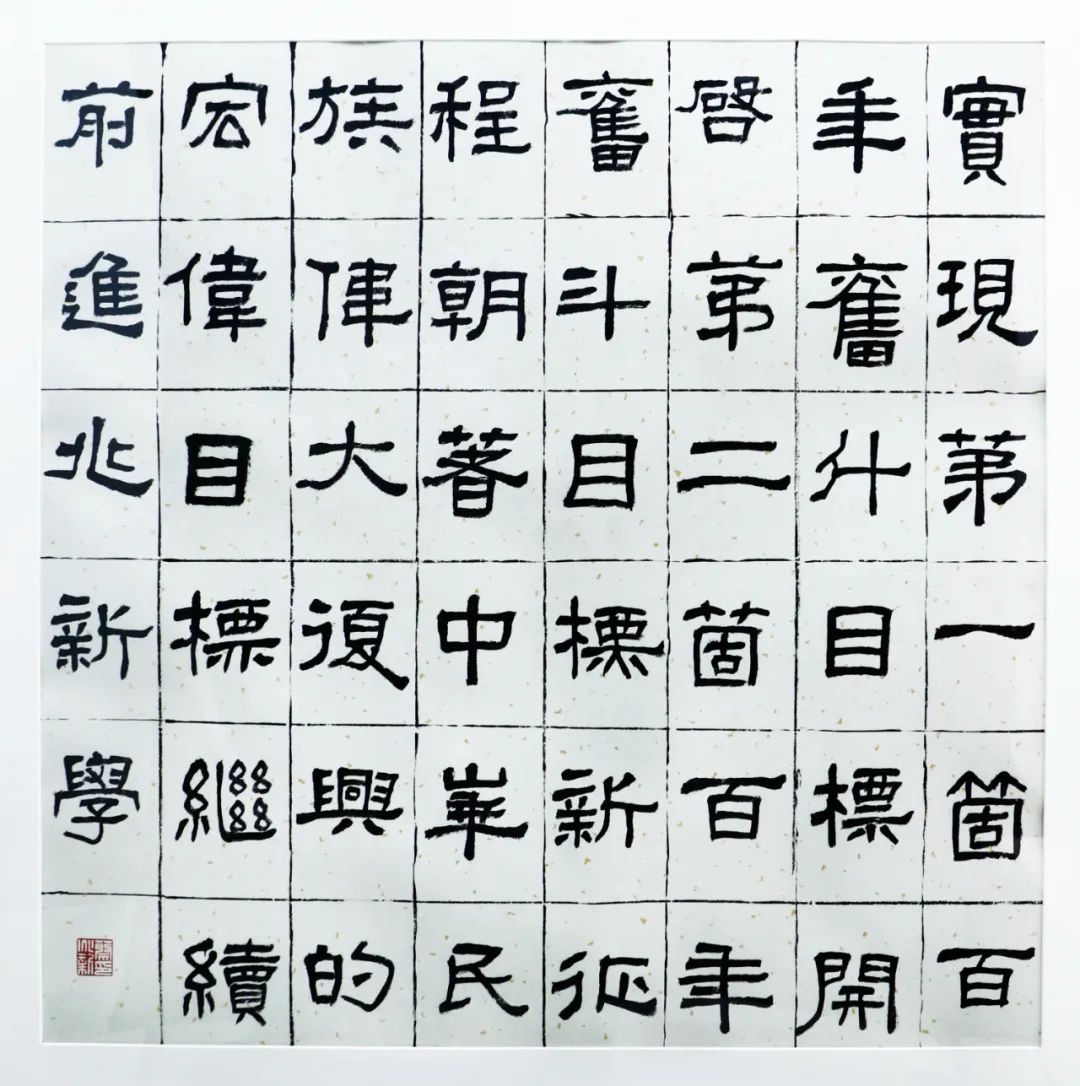 實現第一箇百
年奮斗目標開
啓第二箇百年
奮斗目標新征
程朝著中華民
族偉大復興的
宏偉目標繼續
前進兆新學